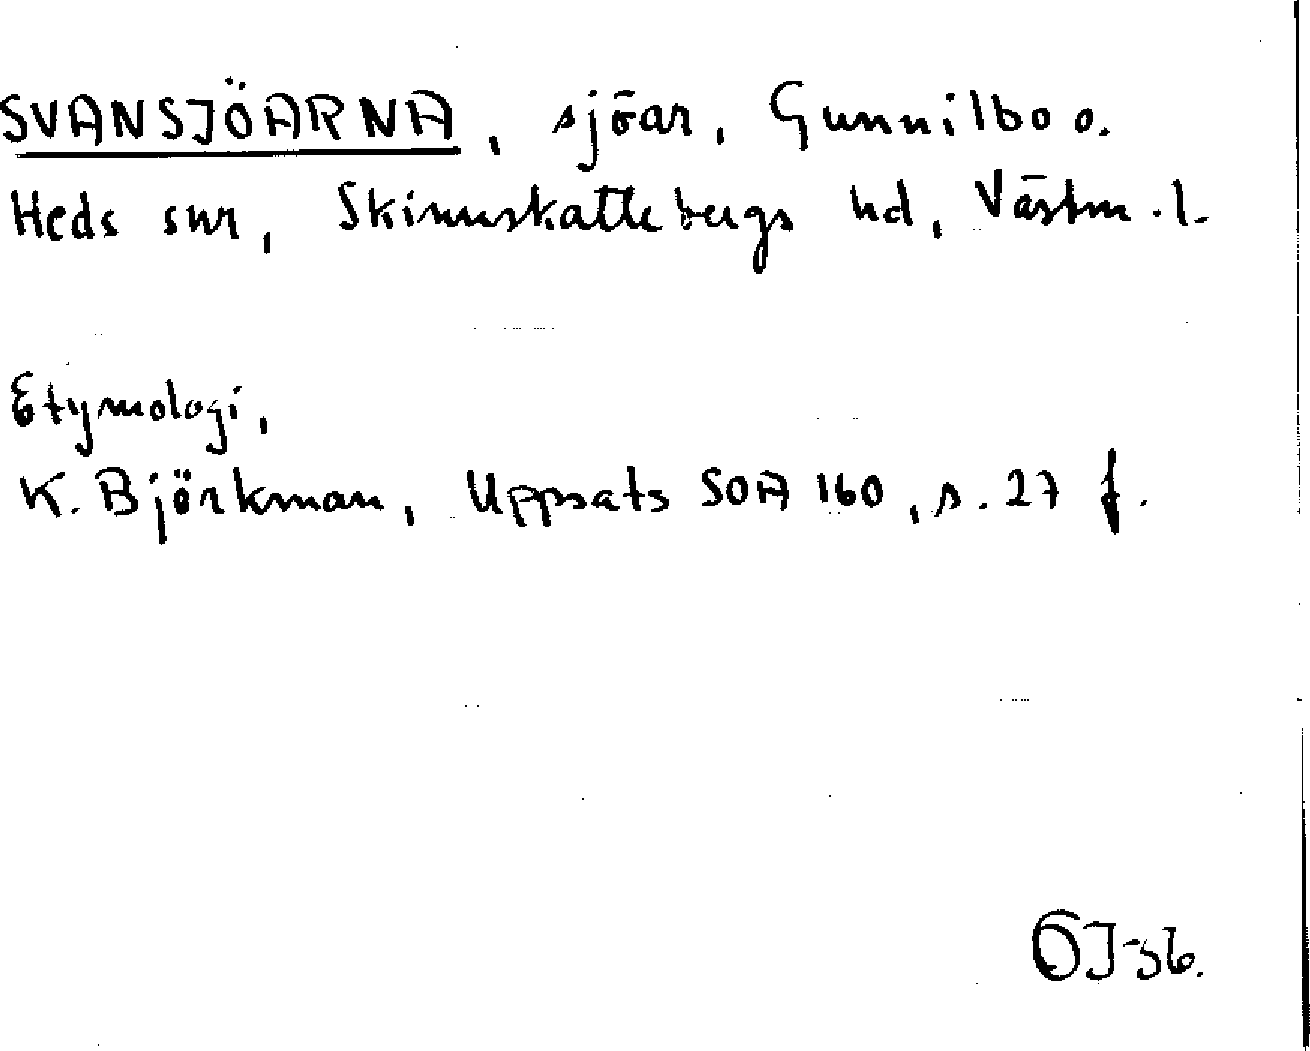 SVANSJÖARNA, sjöar, Gunnilbo o.
Heds snr, Skinnskattebergs hd, Västm.l.
Etymologi,
K. Björkman, Uppsats SOA 160, s. 27 f.